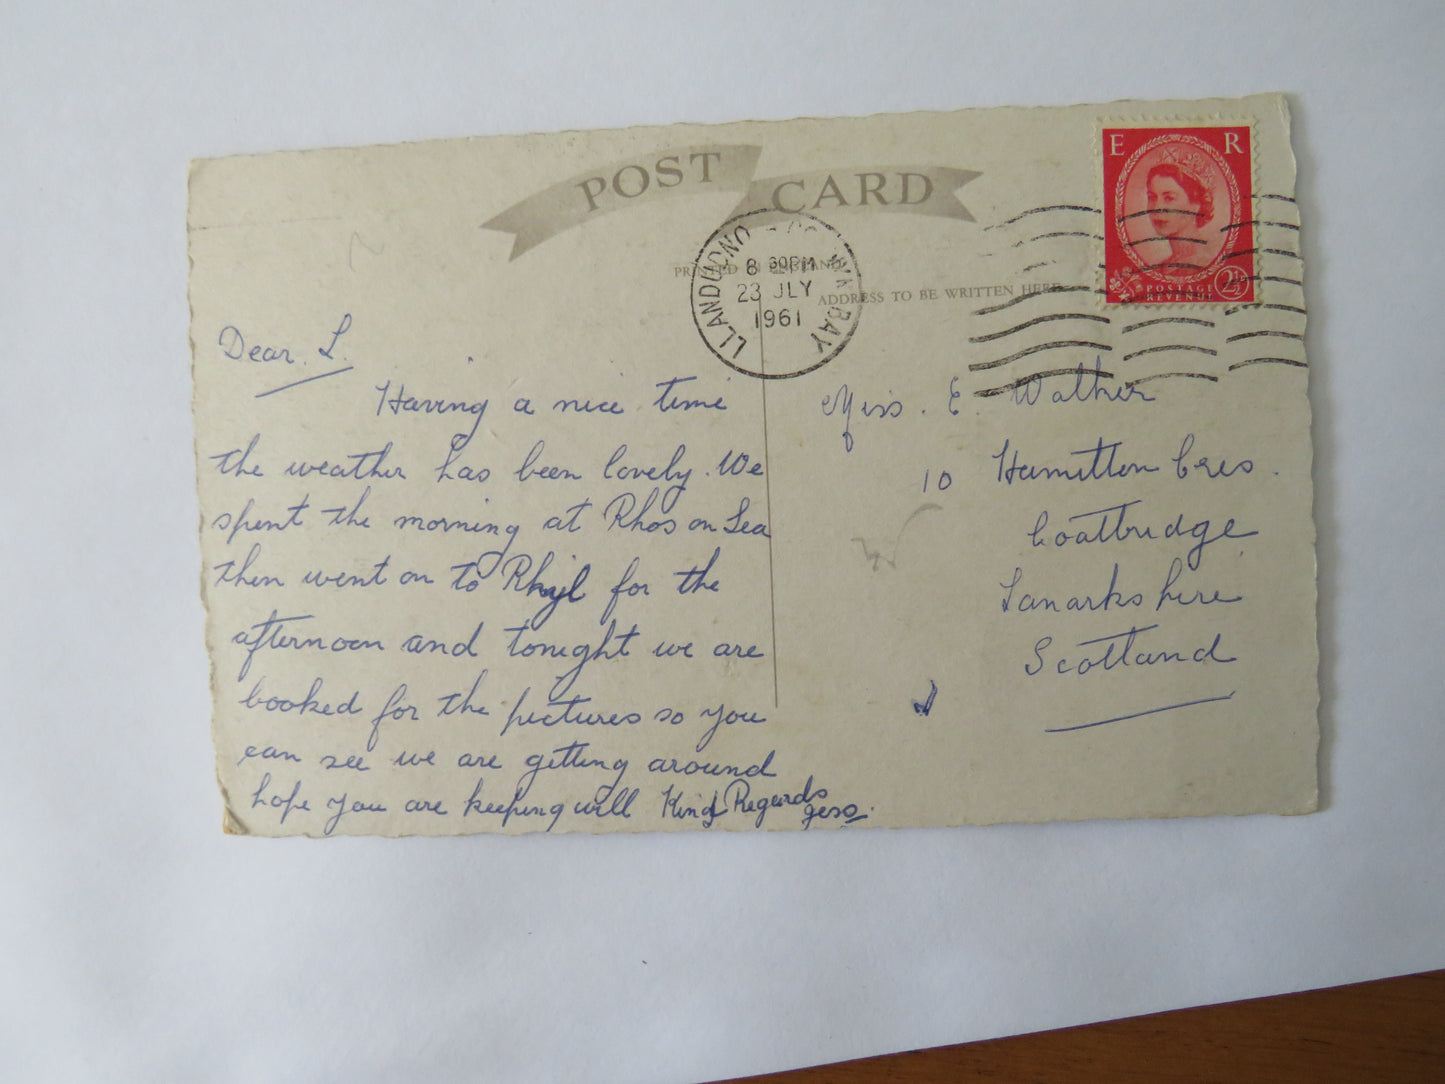 POST CARD
PRINTED IN ENGLAND
ADDRESS TO BE WRITTEN HERE
E R
POSTAGE
REVENUE
2½D
LLANDUDNO - CONWAY BAY
8 30PM
23 JLY
1961
Dear L.
Having a nice time
the weather has been lovely. We
spent the morning at Rhos on Sea
then went on to Rhyl for the
afternoon and tonight we are
booked for the pictures so you
can see we are getting around
hope you are keeping well Kind Regards
Jess.
Miss. E. Walker
10 Hamilton Cres.
Coatbridge
Lanarkshire
Scotland